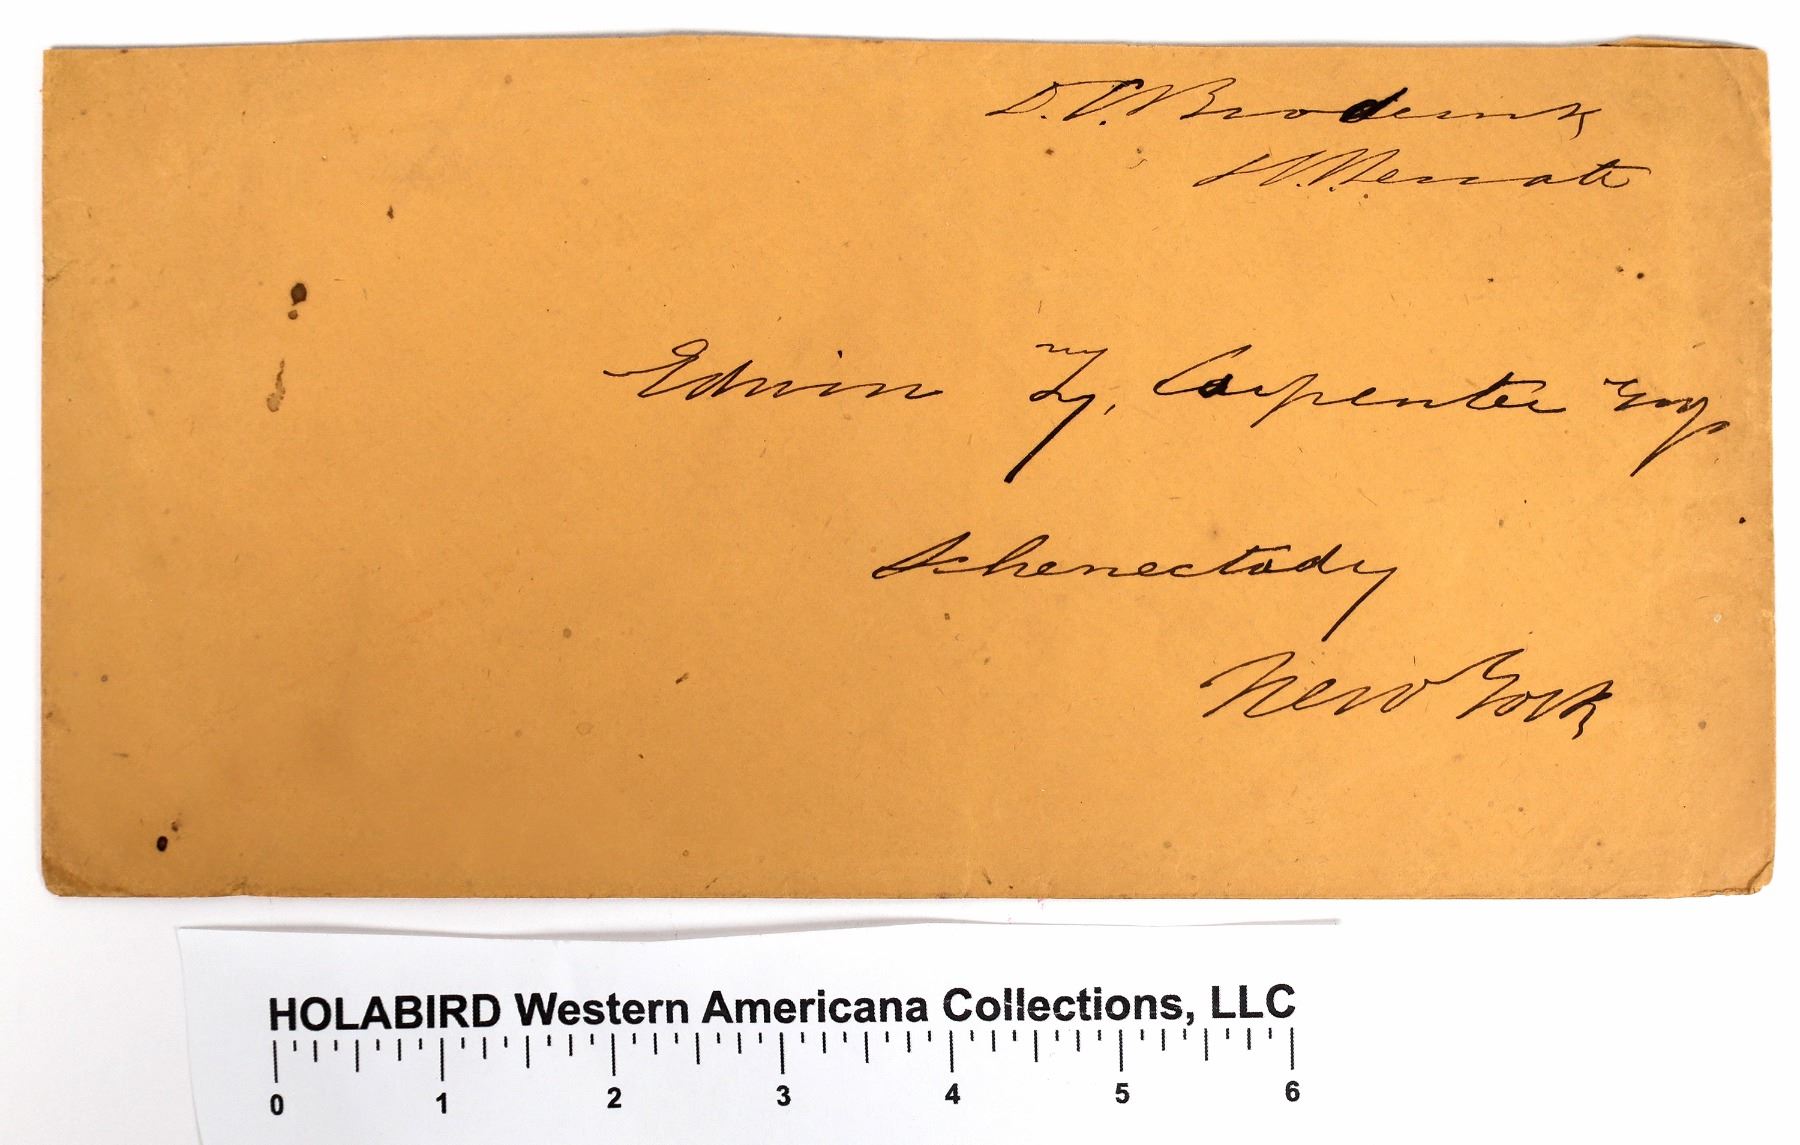 D. C. Broderick
U.S. Senate
Edwin Z, Carpenter Esq
Schenectady
New York
HOLABIRD Western Americana Collections, LLC
0 1 2 3 4 5 6